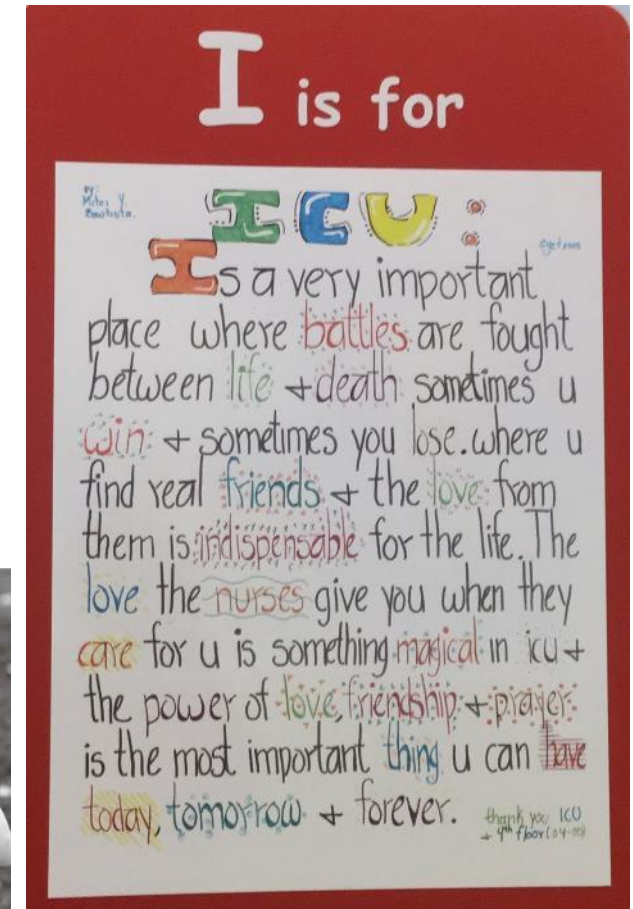 I is for
by:
ICU:
Is a very important
place where battles are fought
between life + death sometimes u
win + sometimes you lose. where u
find real friends + the love from
them is indispensable for the life. The
love the nurses give you when they
care for u is something magical in icu +
the power of love, friendship + prayer
is the most important thing u can have
today, tomorrow + forever.
thank you ICU
+ 4th floor